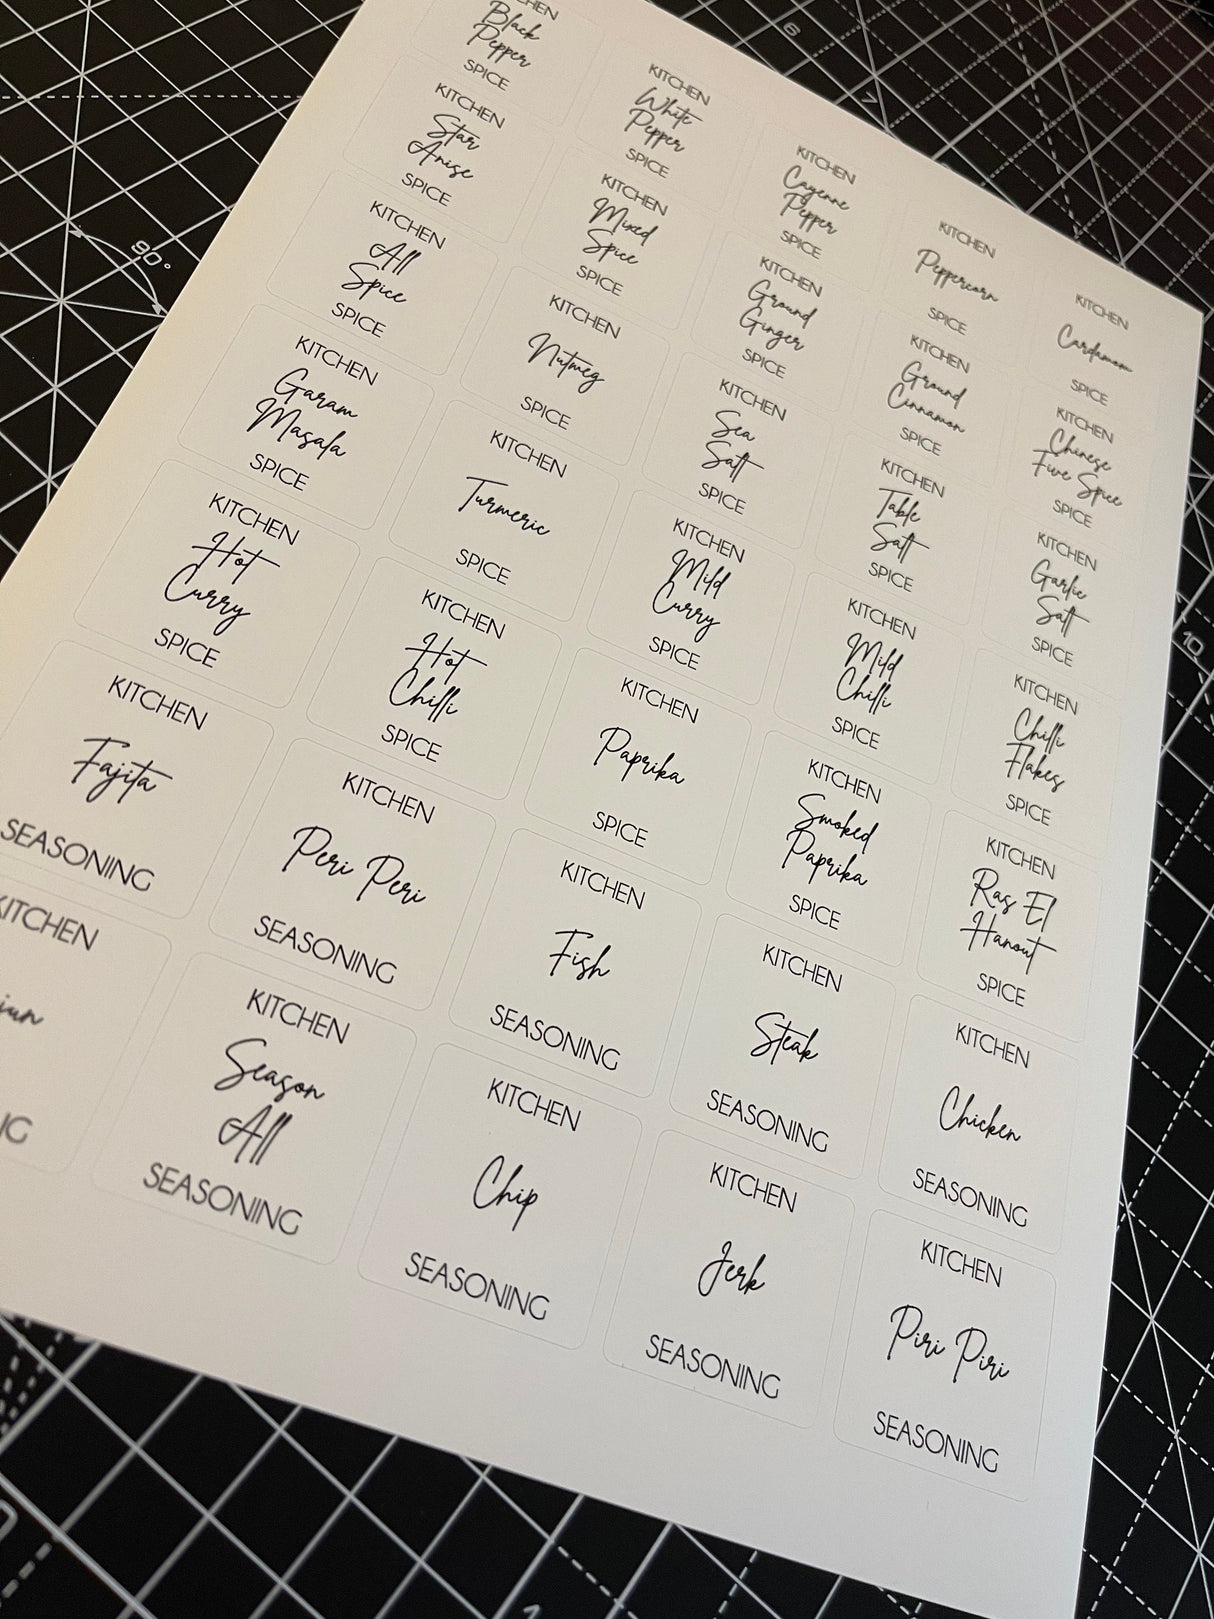 CHEN
Black
Pepper
SPICE
KITCHEN
White
Pepper
SPICE
KITCHEN
Cayenne
Pepper
SPICE
KITCHEN
Peppercorn
SPICE
KITCHEN
Cardamom
SPICE
KITCHEN
Star
Anise
SPICE
KITCHEN
Mixed
Spice
SPICE
KITCHEN
Ground
Ginger
SPICE
KITCHEN
Ground
Cinnamon
SPICE
KITCHEN
Chinese
Five Spice
SPICE
KITCHEN
All
Spice
SPICE
KITCHEN
Nutmeg
SPICE
KITCHEN
Sea
Salt
SPICE
KITCHEN
Table
Salt
SPICE
KITCHEN
Garlic
Salt
SPICE
KITCHEN
Garam
Masala
SPICE
KITCHEN
Turmeric
SPICE
KITCHEN
Mild
Curry
SPICE
KITCHEN
Mild
Chilli
SPICE
KITCHEN
Chilli
Flakes
SPICE
KITCHEN
Hot
Curry
SPICE
KITCHEN
Hot
Chilli
SPICE
KITCHEN
Paprika
SPICE
KITCHEN
Smoked
Paprika
SPICE
KITCHEN
Ras El
Hanout
SPICE
KITCHEN
Fajita
SEASONING
KITCHEN
Peri Peri
SEASONING
KITCHEN
Fish
SEASONING
KITCHEN
Steak
SEASONING
KITCHEN
Chicken
SEASONING
KITCHEN
jun
NG
KITCHEN
Season
All
SEASONING
KITCHEN
Chip
SEASONING
KITCHEN
Jerk
SEASONING
KITCHEN
Piri Piri
SEASONING
90°
6
7
10